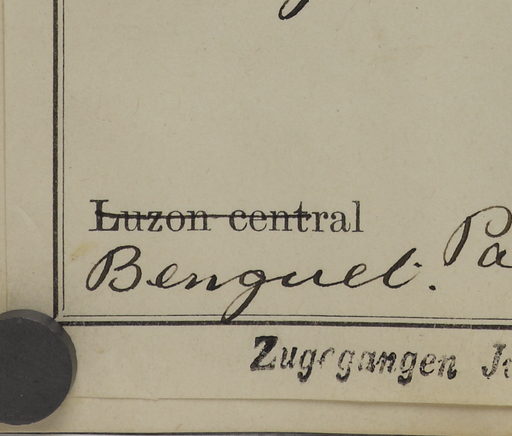 Luzon central
Benguet. Pa
Zugegangen Ja